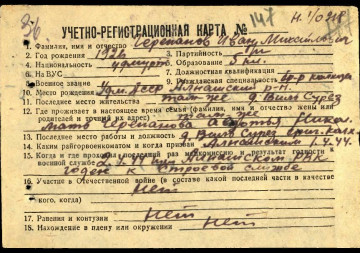 36 147 Н.1/0318
УЧЕТНО-РЕГИСТРАЦИОННАЯ КАРТА №
1. Фамилия, имя и отчество Черепанов Иван Михайлович
2. Год рождения 1926 3. Партийность б/п
4. Национальность удмурт 5. Образование 5 кл.
6. На ВУС 7. Должностная квалификация
8. Военное звание бр-р колхоза
10. Место рождения Удм. АССР Алнашский р-н.
11. Последнее место жительства там же д. Вили Сурез
12. Где проживает в настоящее время семья (фамилия, имя и отчество жены или
родителей и точный их адрес) там же
мать Черепанова
13. Последнее место работы и должность д. Вили Сурез бриг. колх.
14. Каким райгорвоенкоматом и когда призван Алнашским 1.4.44.
15. Когда и где проходил последний раз медкомиссию и результат годности к
военной службе РВК
годен к строевой службе
16. Участие в Отечественной войне (в составе какой последней части и в качестве
кого, когда) Нет
17. Ранения и контузии Нет
18. Нахождение в плену или окружении Нет